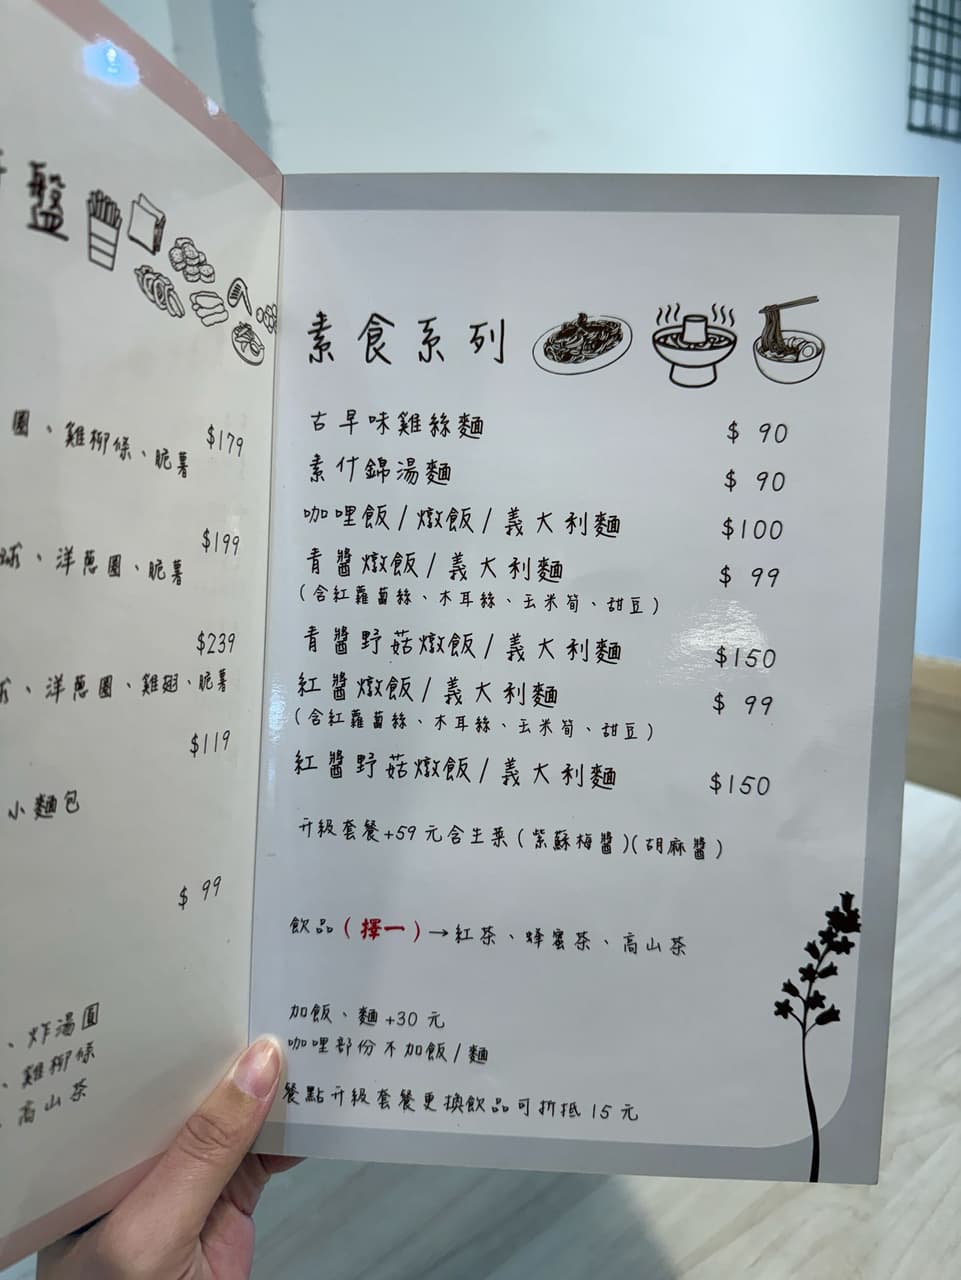 盤
圈、雞柳條、脆薯 $179
球、洋蔥圈、脆薯 $199
、洋蔥圈、雞翅、脆薯 $239
$119
小麵包
$ 99
、炸湯圓
、雞柳條
高山茶
素食系列
古早味雞絲麵 $ 90
素什錦湯麵 $ 90
咖哩飯/燉飯/義大利麵 $100
青醬燉飯/義大利麵 $ 99
(含紅蘿蔔絲、木耳絲、玉米筍、甜豆)
青醬野菇燉飯/義大利麵 $150
紅醬燉飯/義大利麵 $ 99
(含紅蘿蔔絲、木耳絲、玉米筍、甜豆)
紅醬野菇燉飯/義大利麵 $150
升級套餐+59元含生菜(紫蘇梅醬)(胡麻醬)
飲品(擇一)→紅茶、蜂蜜茶、高山茶
加飯、麵+30元
咖哩部份不加飯/麵
餐點升級套餐更換飲品可折抵15元